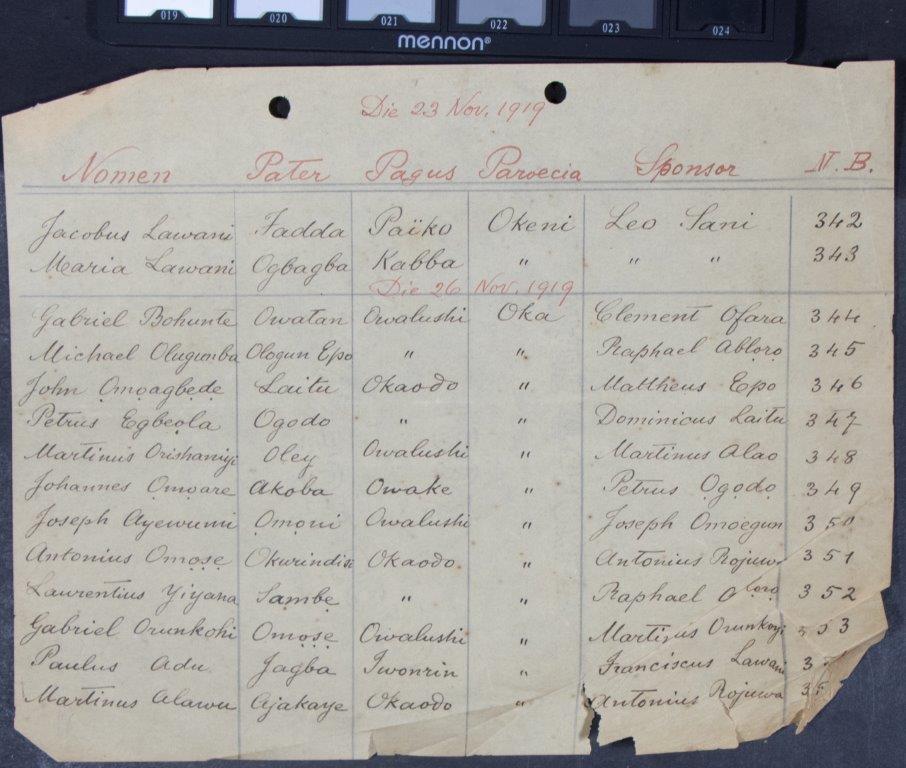 019 020 021 022 023 024
mennon®
Die 23 Nov. 1919
Nomen Pater Pagus Paroecia Sponsor N.B.
Jacobus Lawani Fadda Païko Okeni Leo Sani 342
Maria Lawani Ogbagba Kabba " " " 343
Die 26 Nov. 1919
Gabriel Bohunte Owatan Owalushi Oka Clement Ofara 344
Michael Olugunba Ologun Epo " " Raphael Abloro 345
John Ọmọagbẹde Laitu Okaodo " Mattheus Epo 346
Petrus Egbeọla Ogodo " " Dominicus Laitu 347
Martinus Orishaniyi Oley Owalushi " Martinus Alao 348
Johannes Omọare Akoba Owake " Petrus Ọgọdọ 349
Joseph Ayewumi Ọmọni Owalushi " Joseph Omoegun 350
Antonius Ọmọsẹ Okurindise Okaodo " Antonius Rojuw 351
Laurentius Yiyana Sambẹ " " Raphael 352
Gabriel Orunkohi Ọmọsẹ Owalushi " Martinus Orunkoyi 353
Paulus Adu Jagba Iwonrin " Franciscus Lawani 3
Martinus Alawu Ajakaye Okaodo " Antonius Rojuwa 35